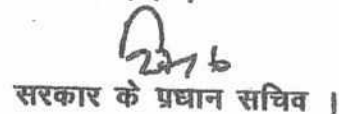 सरकार के प्रधान सचिव ।